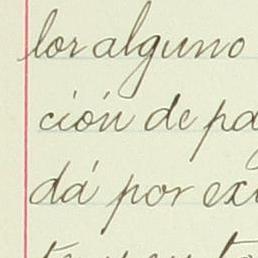 lor alguno
ción de pa
dá por ex